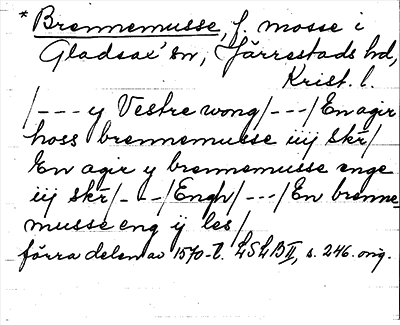 * Brennemusse, f. mosse i
Gladsax' sn, Järrestads hd,
Krist. l.
/--- y Vestre wong/---/En agir
hoss brennemusse iiij skr̃/
En agir y brennemusse enge
iiij skr̃/---/Engh/---/En brenne-
musse eng ij les/
förra delen av 1570-t. LSLB II, s. 246. orig.